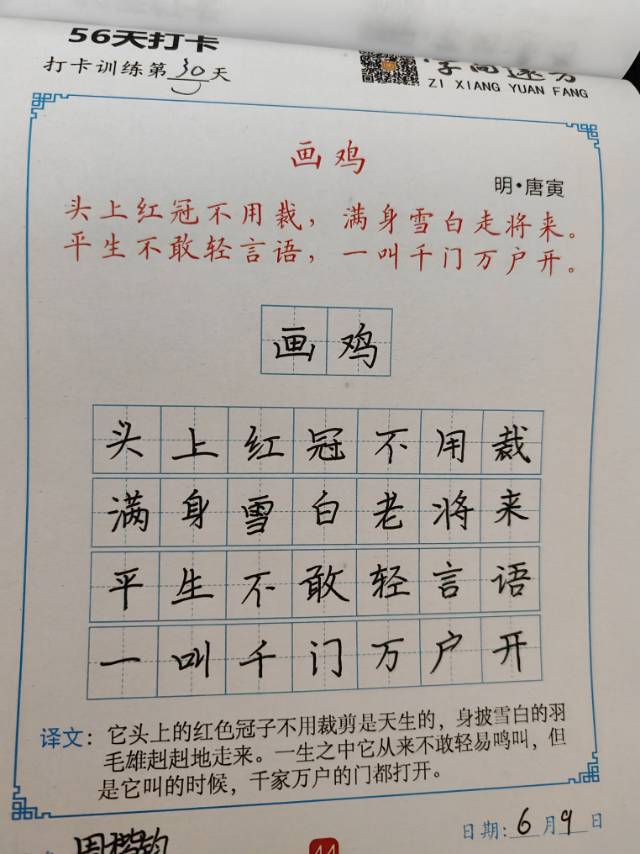 56天打卡
打卡训练第30天
ZI XIANG YUAN FANG
画鸡
明·唐寅
头上红冠不用裁，满身雪白走将来。
平生不敢轻言语，一叫千门万户开。
画鸡
头上红冠不用裁
满身雪白老将来
平生不敢轻言语
一叫千门万户开
译文：它头上的红色冠子不用裁剪是天生的，身披雪白的羽
毛雄赳赳地走来。一生之中它从来不敢轻易鸣叫，但
是它叫的时候，千家万户的门都打开。
日期：6月9日
44